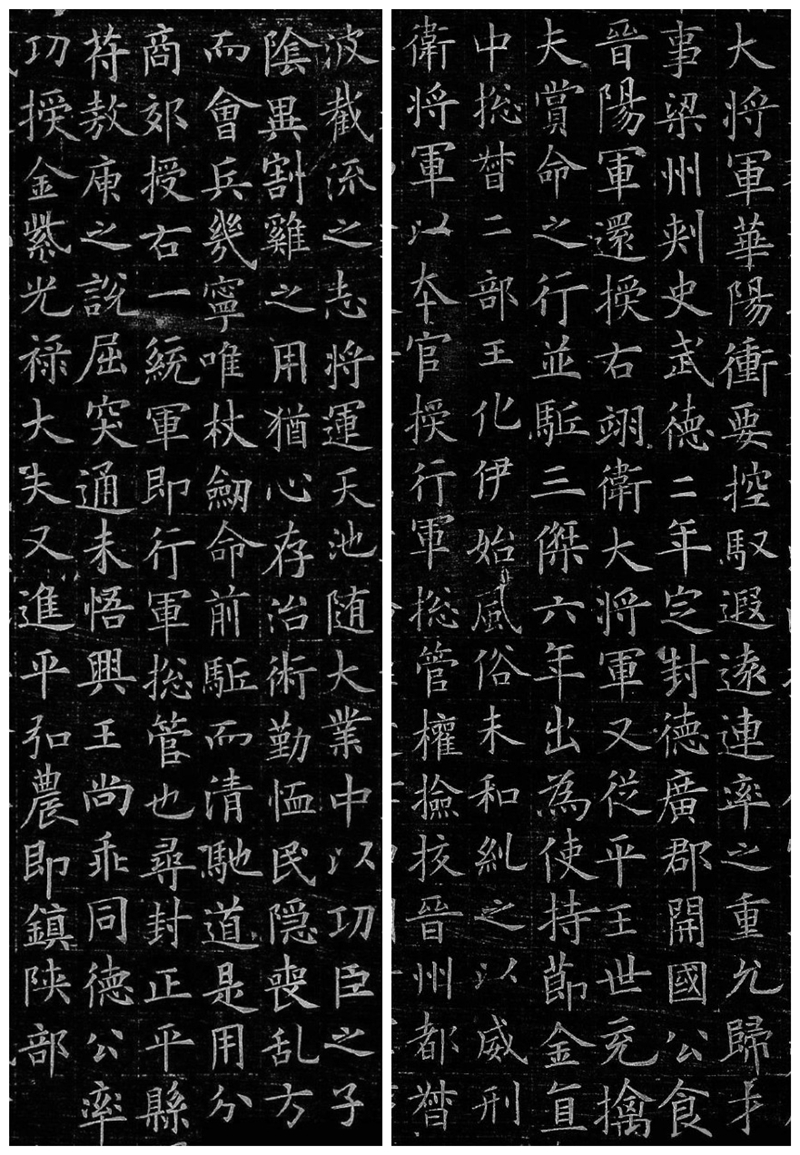 波截流之志将運天池随大業中以功臣之子
陰異割雞之用猶心存治術勤恤民隠喪乱方
而會兵幾寧唯杖劒命前駈而清馳道是用分
商郊授右一統軍即行軍捴管也尋封正平縣
苻敖庾之說屈突通未悟興王尚乖同德公率
功授金紫光禄大夫又進平弘農即鎮陝部
大将軍華陽衝要控馭遐遠連率之重允歸才
事梁州刾史武德二年定封德廣郡開國公食
晉陽軍還授右翊衛大将軍又從平王世充擒
夫賞命之行並駈三傑六年出為使持節金直
中捴督二部王化伊始風俗未和糺之以威刑
衛将軍以本官授行軍捴管權撿挍晉州都督